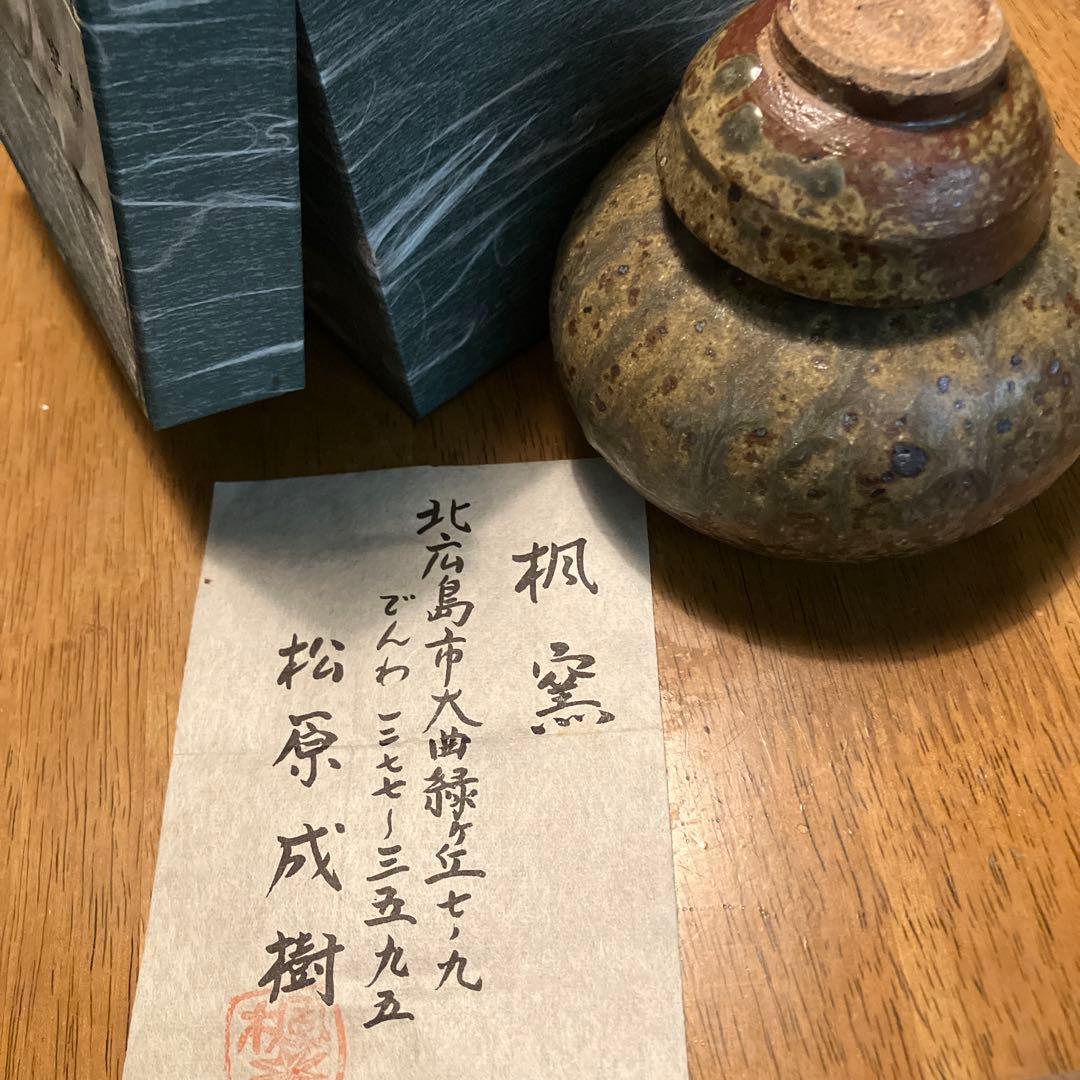 楓窯
北広島市大曲緑ヶ丘七、九
でんわ 三七七〜三五九五
松原成樹